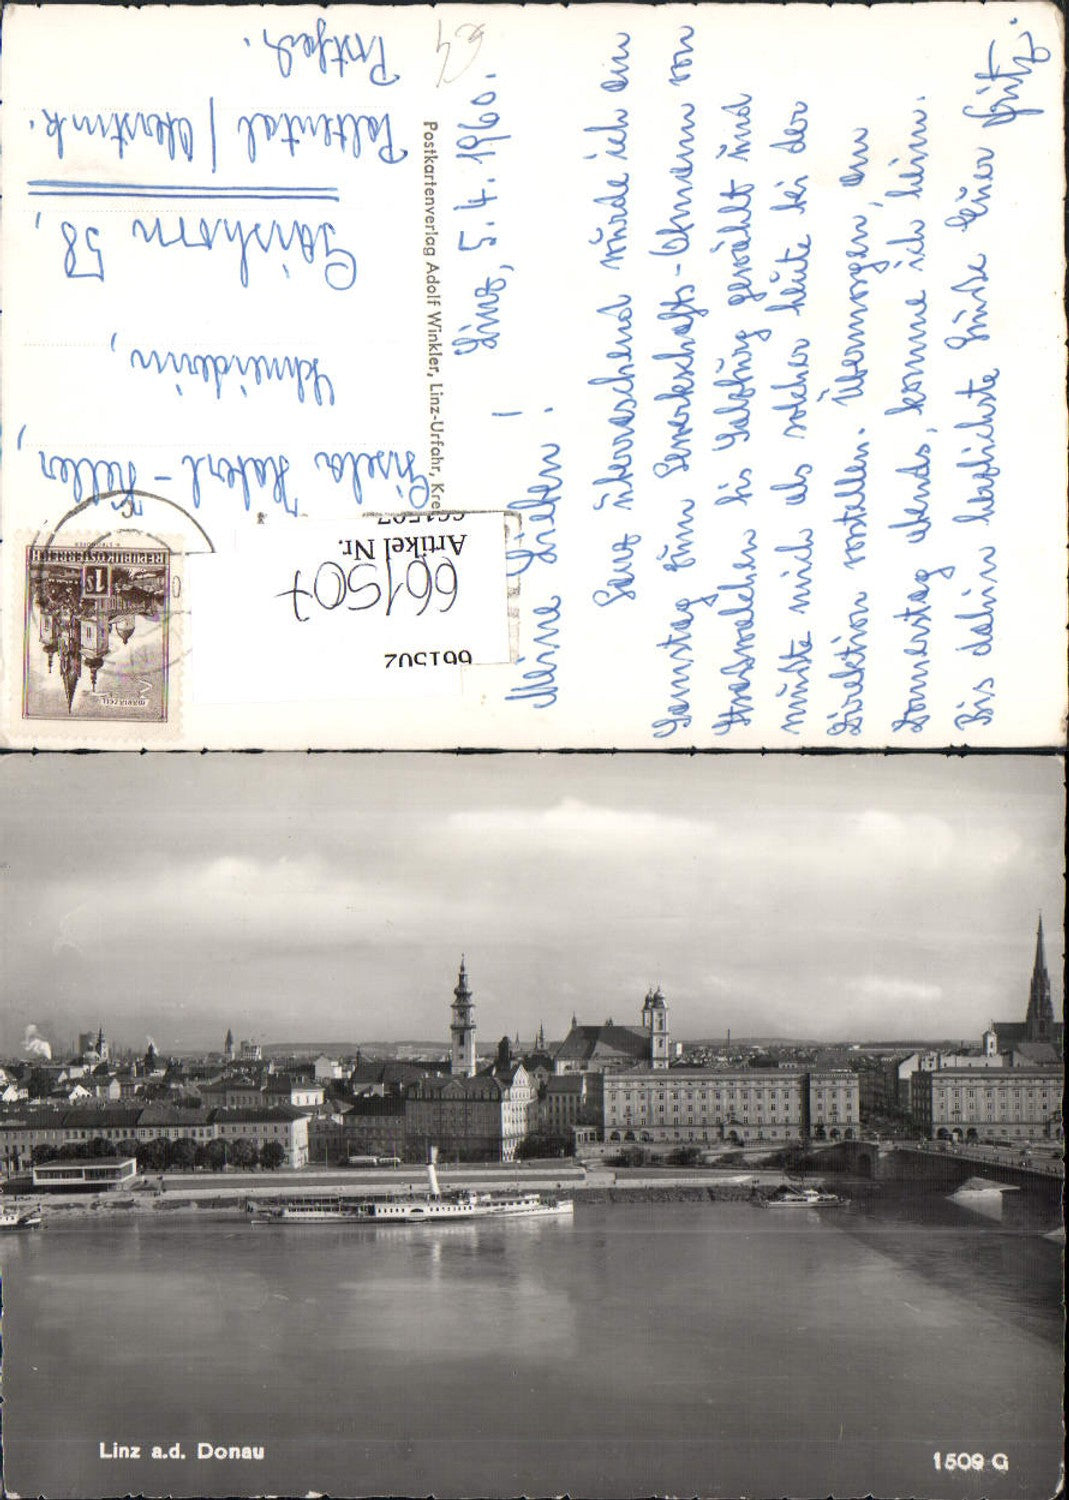 Linz, 5.4.1960.
Meine Lieben!
Ganz überraschend wurde ich am
Samstag zum Gewerkschafts-Obmann von
Strasswalchen bis Salzburg gewählt und
mußte mich als solcher heute bei der
Direktion vorstellen. Übermorgen, am
Donnerstag abends, komme ich heim.
Bis dahin herzlichste Grüße Euer Fritz.
Postkartenverlag Adolf Winkler, Linz-Urfahr, Kre
Gisela Haberl - Keller,
Schneiderin,
Gaishorn 58,
Paltental / Oberstmk.
Postfach.
REPUBLIK ÖSTERREICH
1
MARIAZELL
661507
Artikel Nr.
661507
661502
Linz a.d. Donau
1509 G